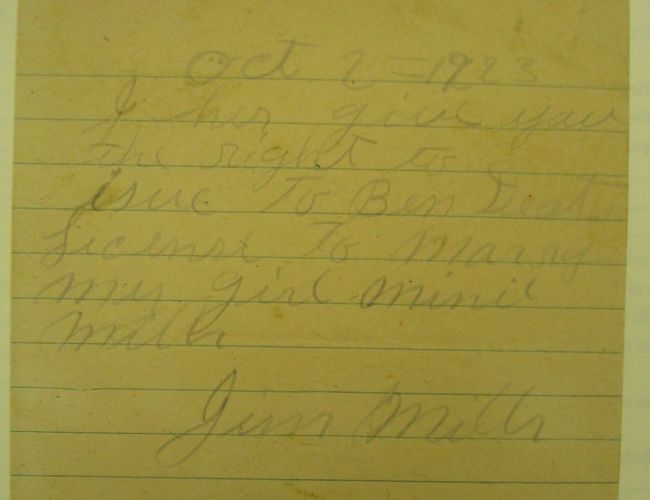 Oct 2 = 1923
I her give you
the right to
isue to Ben
License to Marry
my girl Minie
Mills
Jim Mills